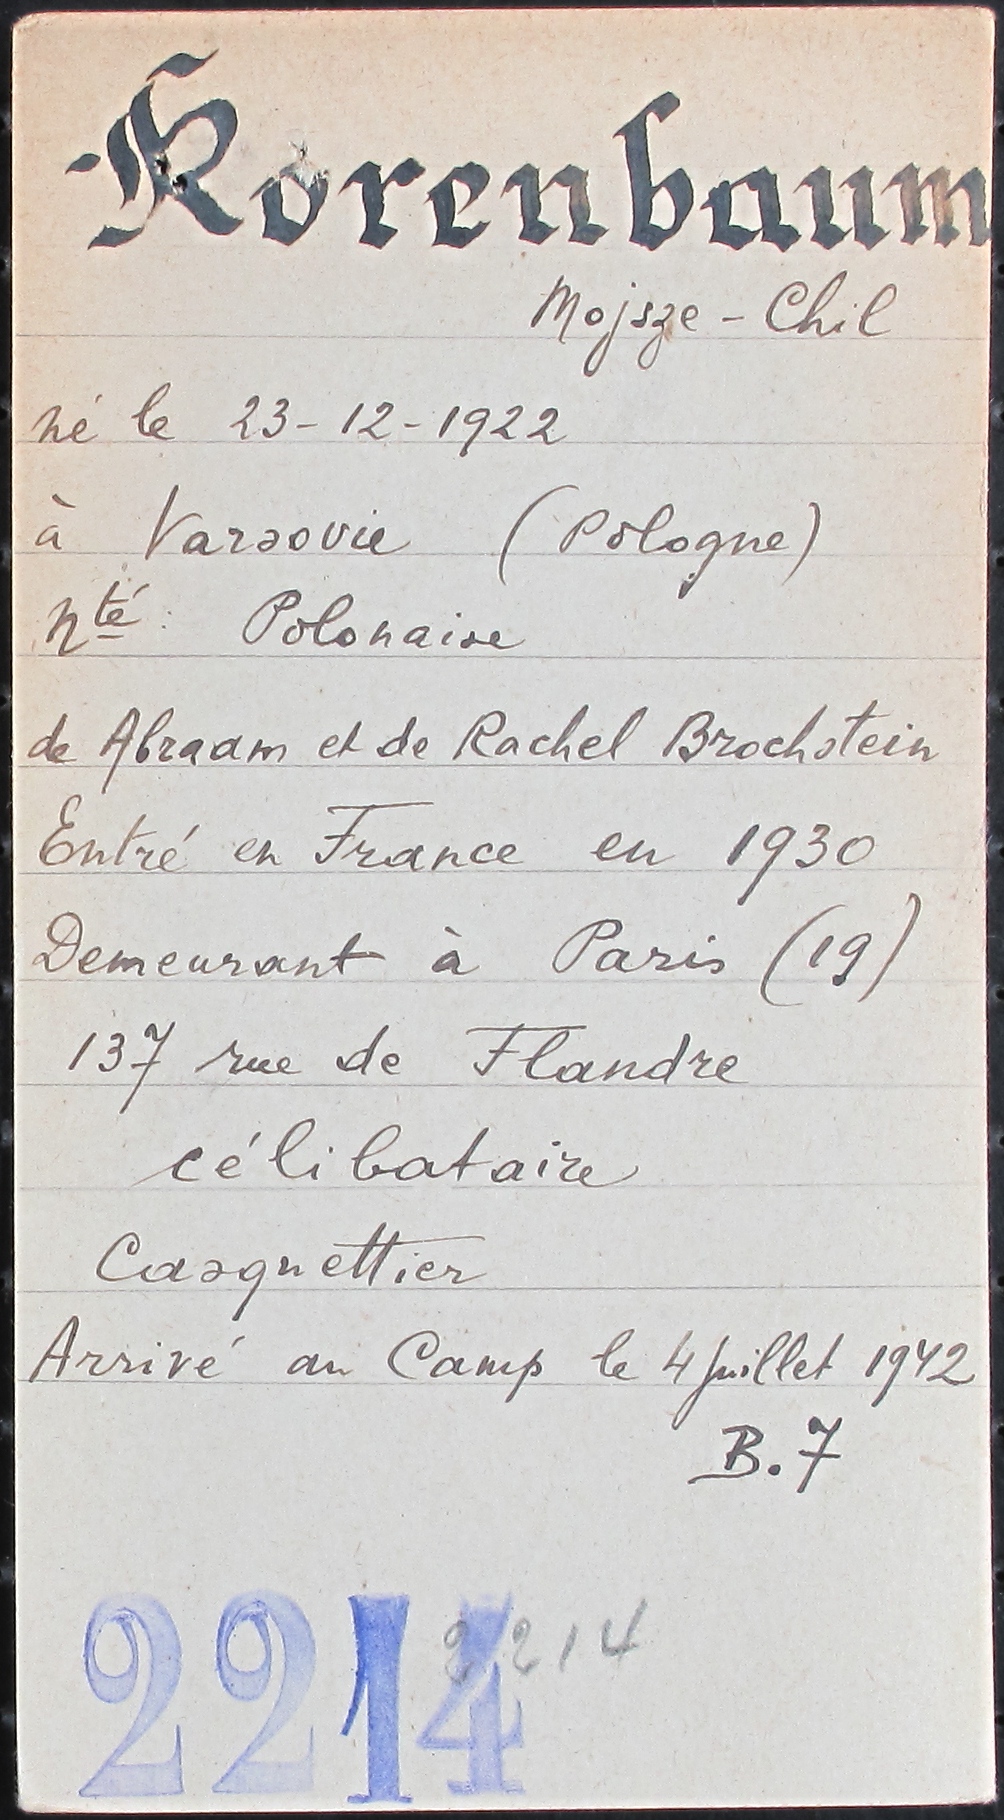 Korenbaum
Mojsze - Chil
né le 23-12-1922
à Varsovie (Pologne)
Nté : Polonaise
de Abraam et de Rachel Brochstein
Entré en France en 1930
Demeurant à Paris (19)
137 rue de Flandre
célibataire
Casquettier
Arrivé au Camp le 4 Juillet 1942
B.7
2214
2214